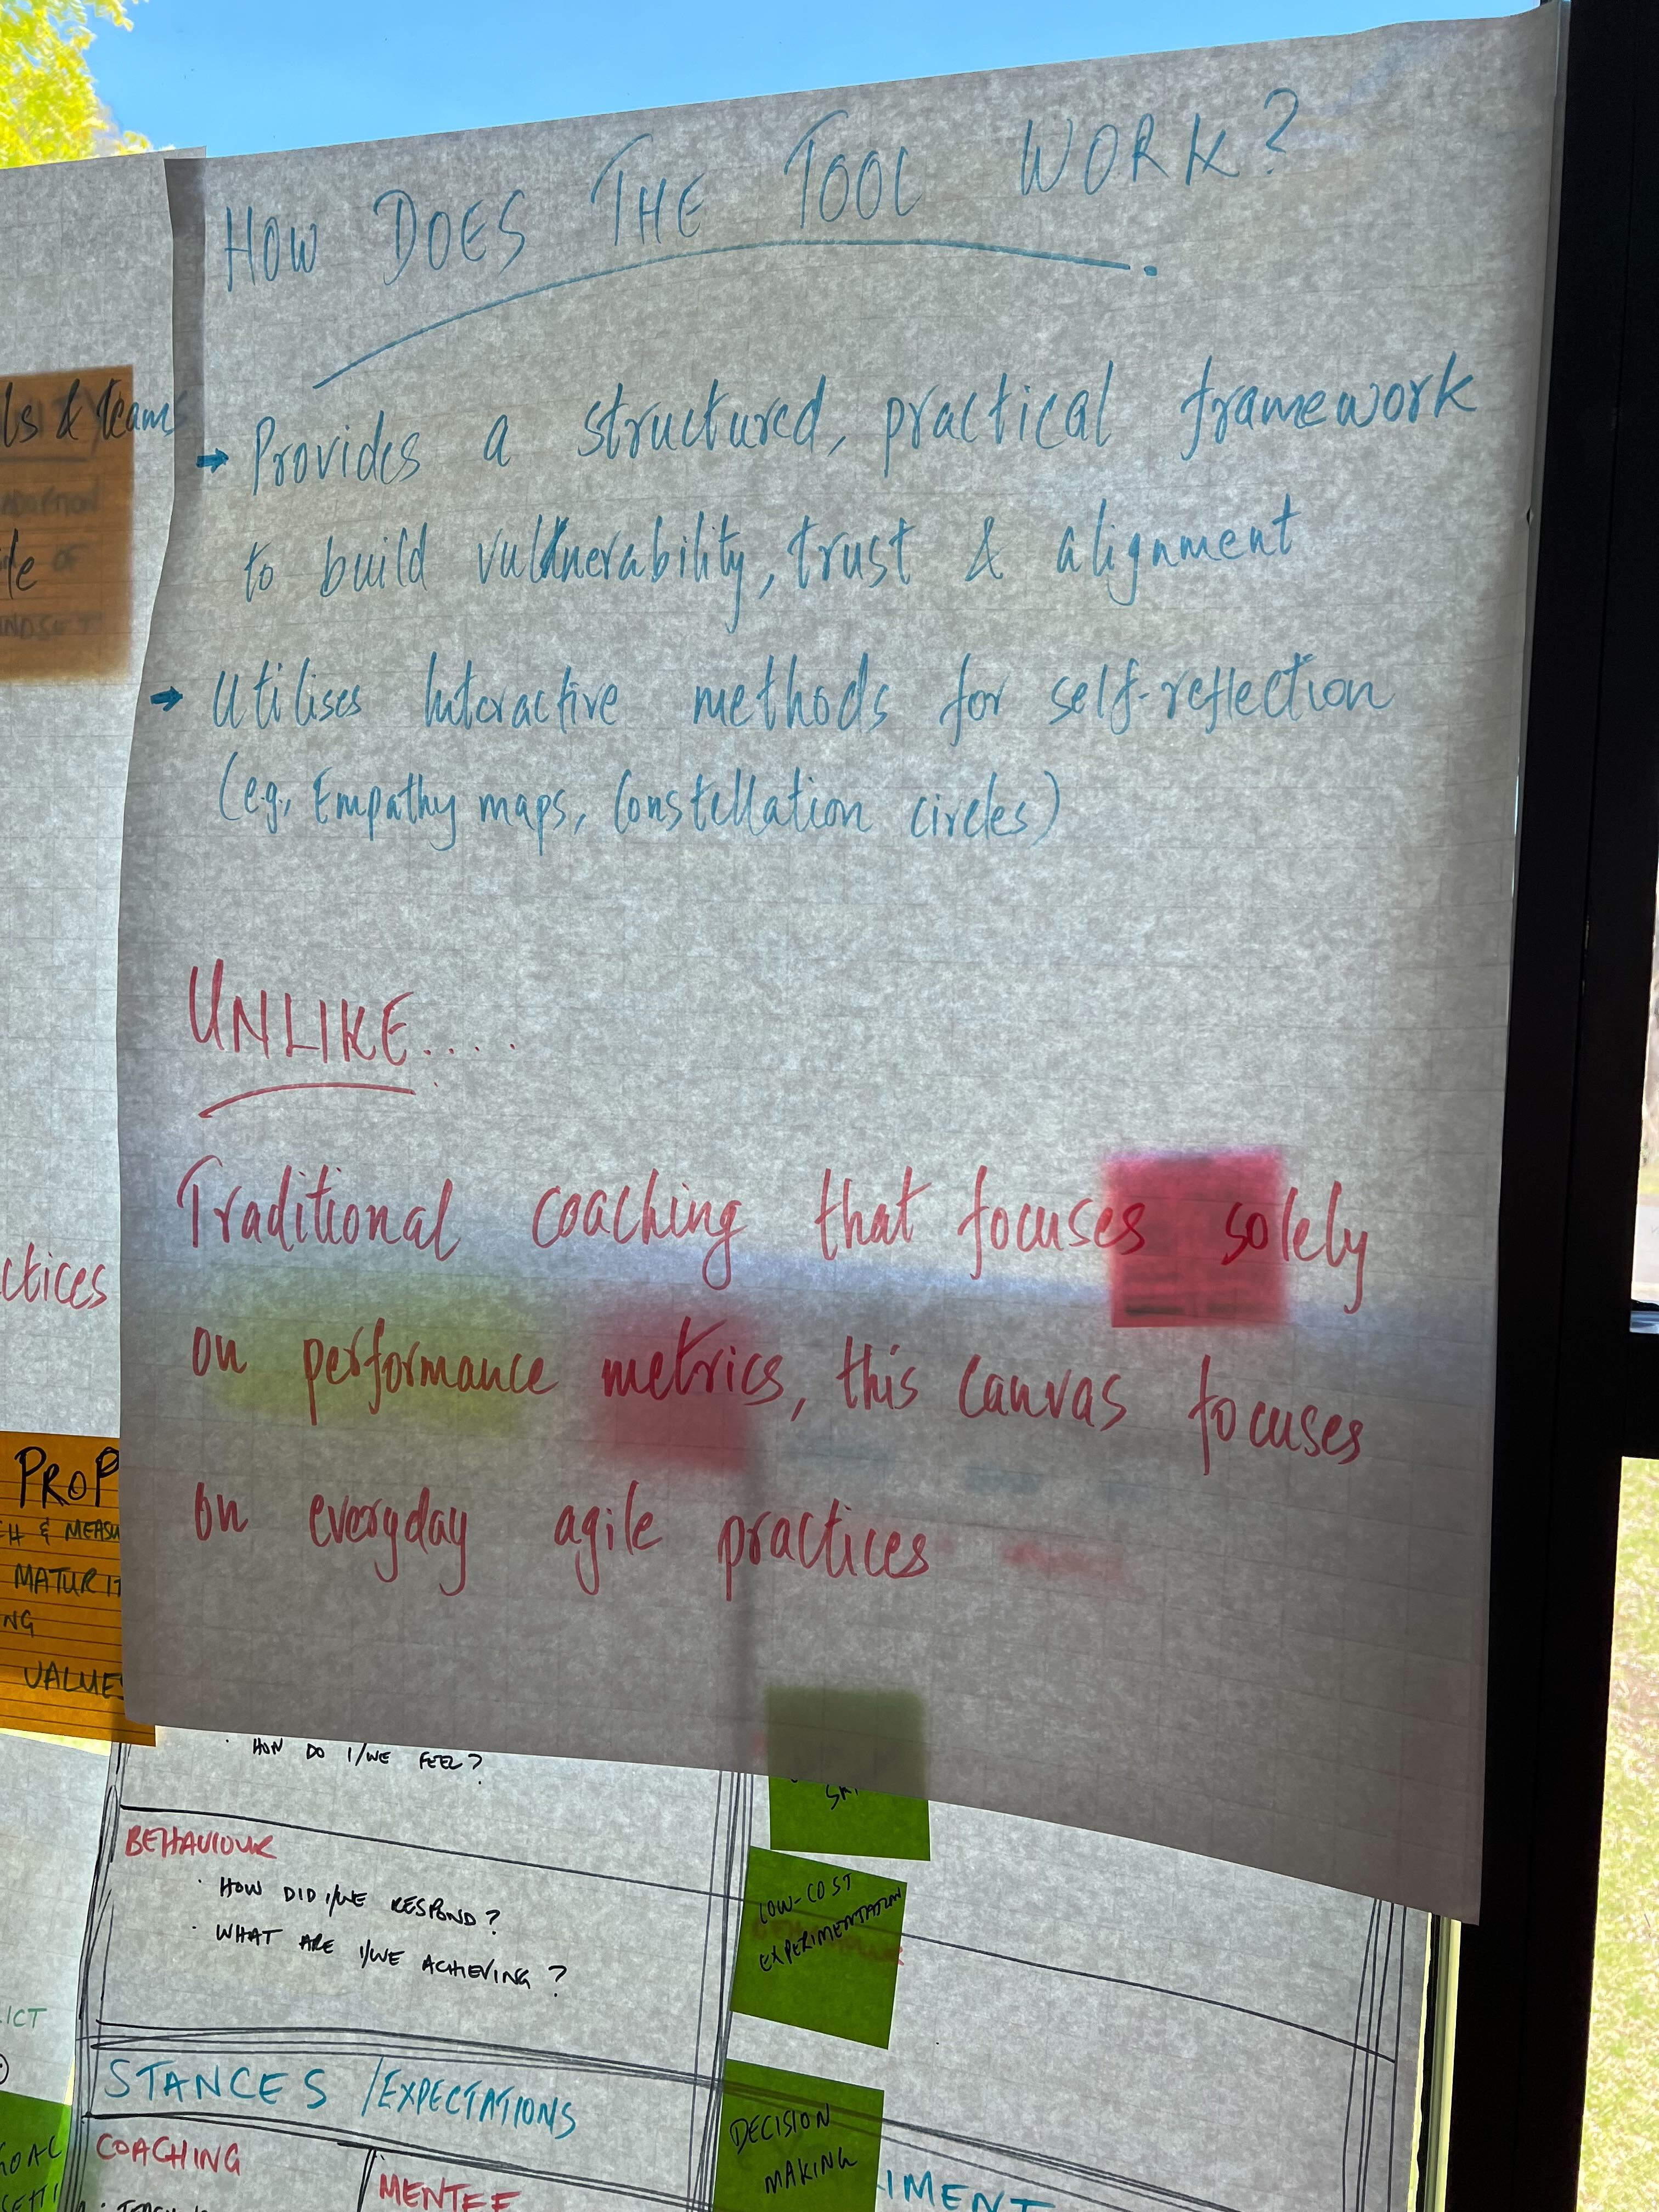 HOW DOES THE TOOL WORK?
→ Provides a structured, practical framework
to build vuldnerability, trust & alignment
→ Utilises Interactive methods for self-reflection
(e.g, Empathy maps, Constellation circles)
UNLIKE....
Traditional coaching that focuses solely
on performance metrics, this canvas focuses
on everyday agile practices
ls & teams
ctices
PROP
H & MEASU
MATURIT
NG
VALUES
· HOW DO I/WE FEEL?
BEHAVIOUR
· HOW DID I/WE RESPOND?
· WHAT ARE I/WE ACHIEVING?
STANCES / EXPECTATIONS
COACHING
MENTEE
LOW-COST
EXPERIMENTATION
DECISION
MAKING
IMENT
ICT
GOAL